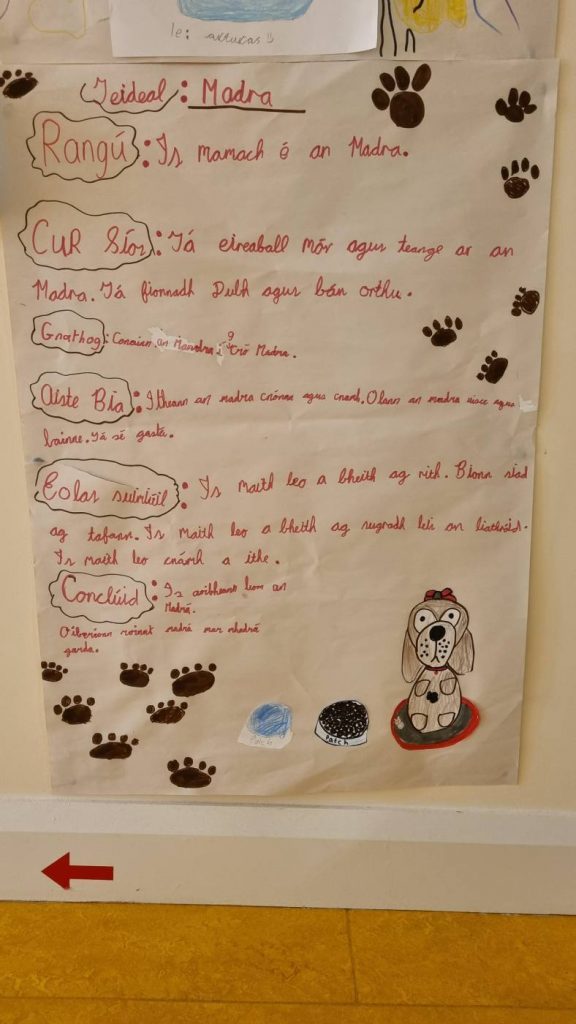 le: 
Teideal: Madra
Rangú: Is mamach é an Madra.
CUR Síos: Tá eireaball mór agus teange ar an
Madra. Tá fionnadh Dubh agus bán orthu.
Gnathog: Conaíonn an Mandra, i gCró Madra.
Aiste Bia: Itheann an madra cnónna agus cnamh. Olann an madra uisce agus
bainne. Tá sé gasta.
Eolas suimiúil: Is maith leo a bheith ag rith. Bíonn siad
ag tafann. Is maith leo a bheith ag sugradh leis an liathróid.
Is maith leo cnámh a ithe.
Conclúid: Is aoibheann liom an
Madrá.
roinnt madrá mar mhadrá
garda.
Patch
Patch